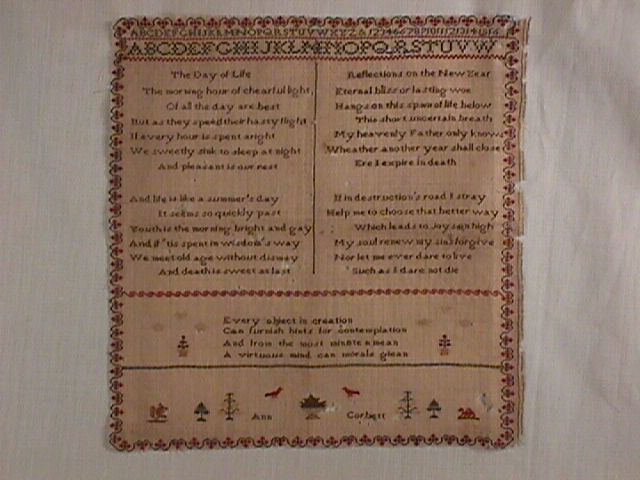 ABCDEFGHIJKLMNOPQRSTUVWXYZ& 12345678910111213141516
ABCDEFGHIJKLMNOPQRSTUVW
The Day of Life
The morning hour of chearful light
Of all the day are best
But as they speed their hasty flight
If every hour is spent aright
We sweetly sink to sleep at night
And pleasant is our rest
And life is like a summer's day
It seems so quickly past
Youth is the morning bright and gay
And if 'tis spent in wisdom's way
We meet old age without dismay
And death is sweet at last
Reflections on the New Year
Eternal bliss or lasting woe
Hangs on this span of life below
This short uncertain breath
My heavenly Father only knows
Wheather another year shall close
Ere I expire in death
If in destruction's road I stray
Help me to choose that better way
Which leads to joys on high
My soul renew my sins forgive
Nor let me ever dare to live
Such as I dare not die
Every object in creation
Can furnish hints for contemplation
And from the most minute & mean
A virtuous mind can morals glean
Ann Corbett